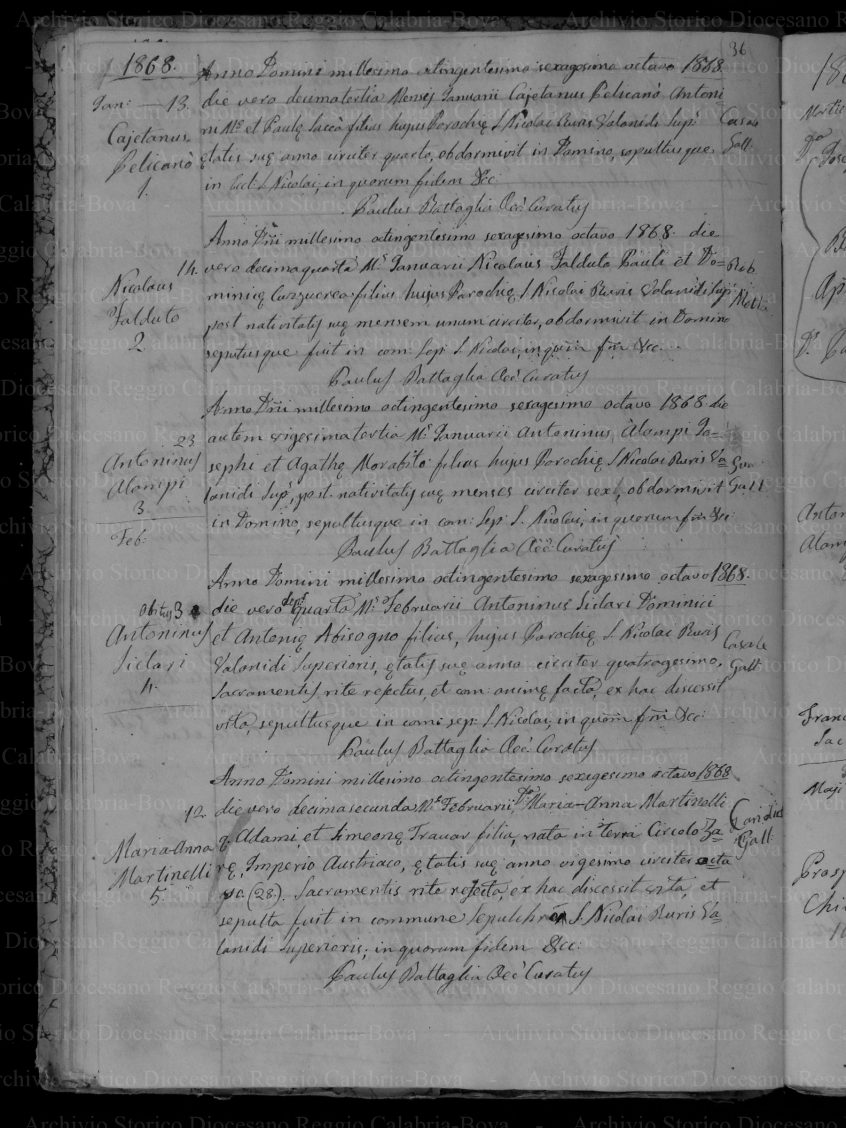 36
1868.
Anno Domini millesimo octingentesimo sexagesimo octavo 1868
Jan: — 13.
die vero decimatertia Mensis Januarii Cajetanus Pelicanò Antoni
Cajetanus
Pelicanò
1.
ni Mê et Paulę Saccà filius hujus Parochię S. Nicolai Ruris Valanidi Supŝ
Casas
Gall.
ętatis suę anno circiter quarto, obdormivit in Domino, sepultusque
in Eccl: S. Nicolai, in quorum fidem &c:
Paulus Battaglia Oec: Curatus
Anno Dñi millesimo octingentesimo sexagesimo octavo 1868. die
14.
Nicolaus
Falduto
2
vero decimaquarta Mˢ Januarii Nicolaus Falduto Pauli et Do=
minicę filius hujus Parochię S. Nicolai Ruris Valanidi Sup:
post nativitatis suę mensem unum circiter, obdormivit in Domino
sepultusque fuit in com: Sep: S. Nicolai, in quôm fm̃ &c:
Paulus Battaglia Oec: Curatus
Anno Dñi millesimo octingentesimo sexagesimo octavo 1868. die
23.
Antoninus
Alampi
3.
autem vigesimatertia Mˢ Januarii Antoninus Alampi Jo=
sephi et Agathę Morabito filius hujus Parochię S. Nicolai Ruris Va=
Gall
lanidi Sup:, post nativitatis suę menses circiter sex, obdormivit
in Domino, sepultusque in com: Sep: S. Nicolai, in quorum fm̃ &c:
Paulus Battaglia Oec: Curatus
Feb:
Anno Domini millesimo octingentesimo sexagesimo octavo 1868.
obitus 3
Antoninus
Siclari
4.
die vero quarta Mˢ Februarii Antoninus Siclari Dominici
et Antonię Abisogno filius, hujus Parochię S. Nicolai Ruris
Casale
Gall.
Valanidi Superioris, ętatis suę anno circiter quatragesimo,
Sacramentis rite refectus, et com: animę facta, ex hac discessit
vita, sepultusque in com: sep: S. Nicolai, in quôm fm̃ &c:
Paulus Battaglia Oec: Curatus
Anno Domini millesimo octingentesimo sexagesimo octavo 1868
12.
Maria-Anna
Martinelli
5.
die vero decimasecunda Mˢ Februarii, Dª Maria-Anna Martinelli
q: Adami, et Simeonę Travar filia, nata in Terra Circolo Za=
Gall
rę, Imperio Austriaco, ętatis suę anno vigesimo circiter octa
vo (28). Sacramentis rite refecta, ex hac discessit vita, et
sepulta fuit in commune Sepulchro S. Nicolai Ruris Va=
lanidi Superioris, in quorum fidem &c:
Paulus Battaglia Oec: Curatus
Archivio Storico Diocesano Reggio Calabria-Bova